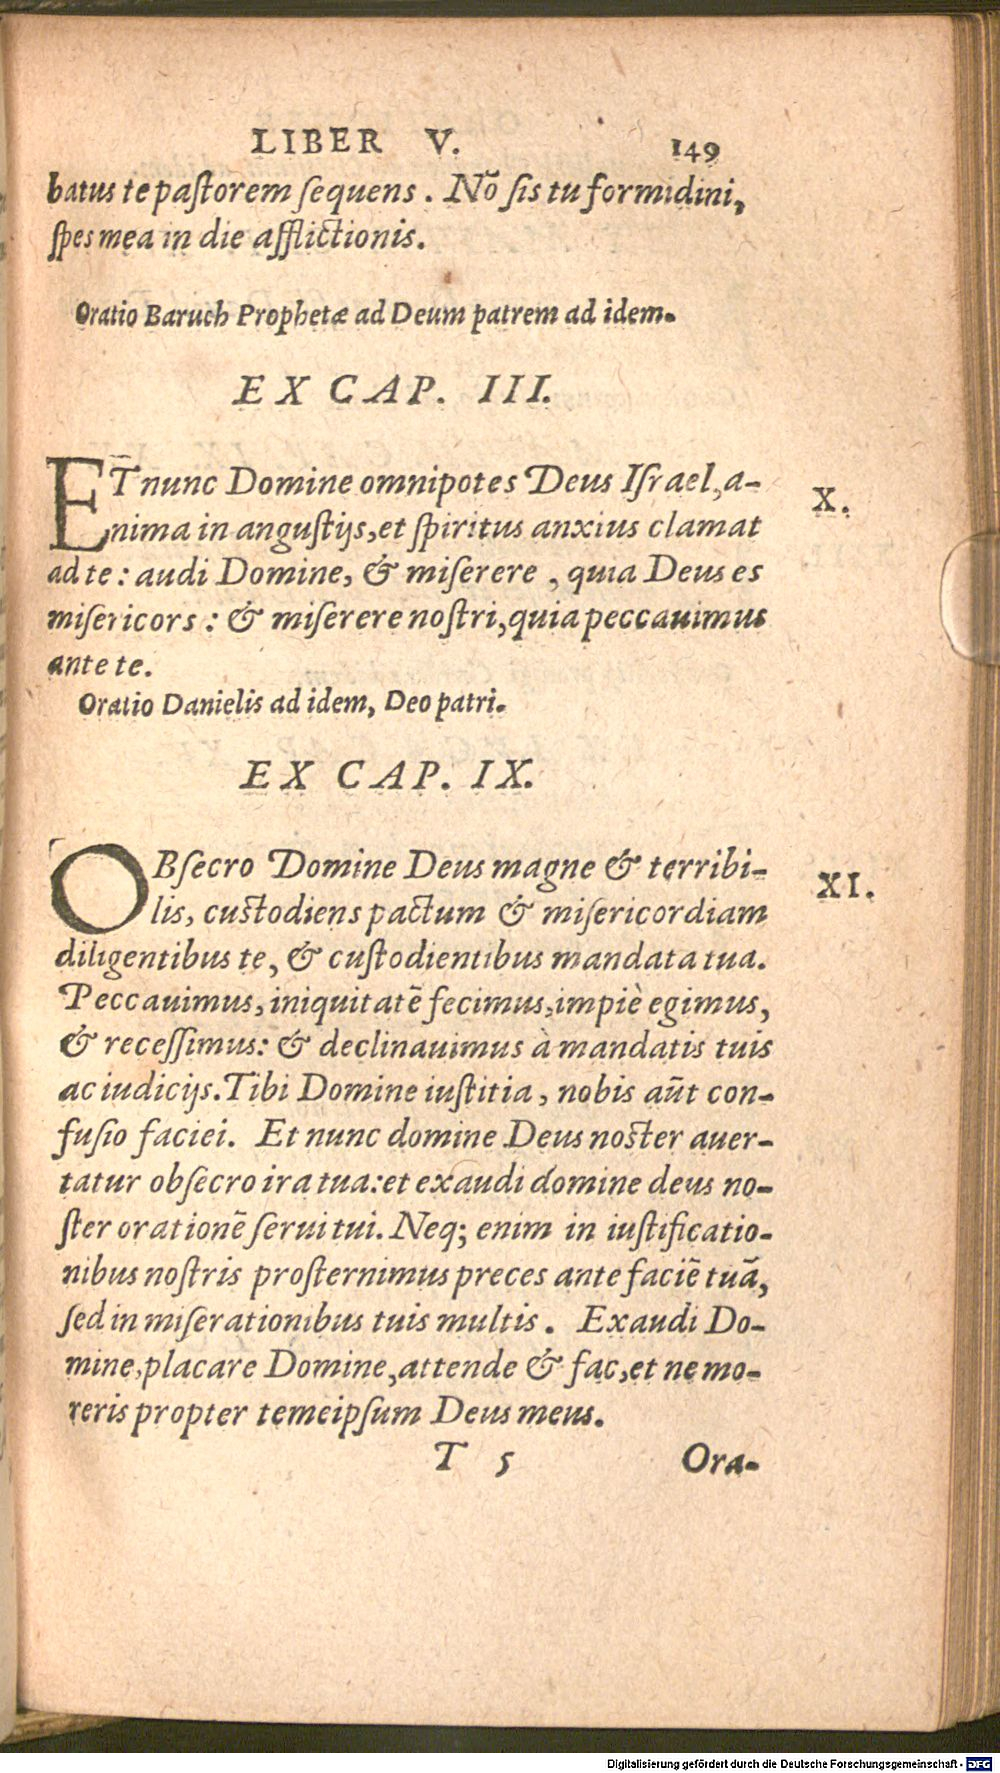 LIBER V. 149
batus te pastorem sequens. Nõ sis tu formidini,
spes mea in die afflictionis.
Oratio Baruch Prophetæ ad Deum patrem ad idem.
EX CAP. III.
ET nunc Domine omnipotẽs Deus Israel, a-
nima in angustijs, et spiritus anxius clamat
ad te: audi Domine, & miserere, quia Deus es
misericors: & miserere nostri, quia peccauimus
ante te.
X.
Oratio Danielis ad idem, Deo patri.
EX CAP. IX.
OBsecro Domine Deus magne & terribi-
lis, custodiens pactum & misericordiam
diligentibus te, & custodientibus mandata tua.
Peccauimus, iniquitatẽ fecimus, impiè egimus,
& recessimus: & declinauimus à mandatis tuis
ac iudicijs. Tibi Domine iustitia, nobis aũt con-
fusio faciei. Et nunc domine Deus noster auer-
tatur obsecro ira tua: et exaudi domine deus no-
ster orationẽ serui tui. Neq; enim in iustificatio-
nibus nostris prosternimus preces ante faciẽ tuã,
sed in miserationibus tuis multis. Exaudi Do-
mine, placare Domine, attende & fac, et ne mo-
reris propter temeipsum Deus meus.
XI.
T 5 Ora-
Digitalisierung gefördert durch die Deutsche Forschungsgemeinschaft - DFG